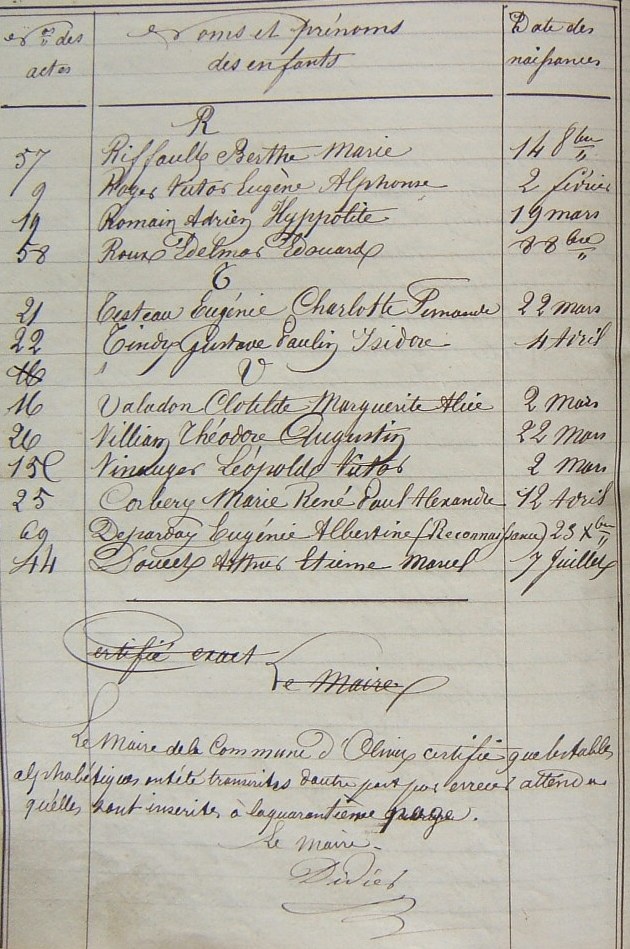 Nos des Noms et prénoms Date des
actes des enfants naissances
R
57 Riffault Berthe Marie 14 8bre
9 Roger Victor Eugène Alphonse 2 février
19 Romain Adrien Hyppolite 19 mars
58 Roux Delmar Edouard 8bre
T
21 Testeau Eugénie Charlotte Fernande 22 mars
22 Tindy Gustave Paulin Isidore 4 Avril
V
16 Valadon Clotilde Marguerite Alice 2 Mars
20 Villian Théodore Augustin 22 Mars
15 Vinauger Léopold Victor 2 Mars
25 Corbery Marie René Paul Alexandre 12 Avril
69 Deparday Eugénie Albertine (Reconnaissance) 23 Xbre
44 Doucet Arthur Etienne Marcel 7 Juillet
Certifié exact
Le Maire
Le Maire de la Commune d'Olivet certifie que les tables
alphabétiques ont été transcrites d'autre part par erreur attendu
qu'elles sont inscrites à la quarantième page.
Le Maire
Didier